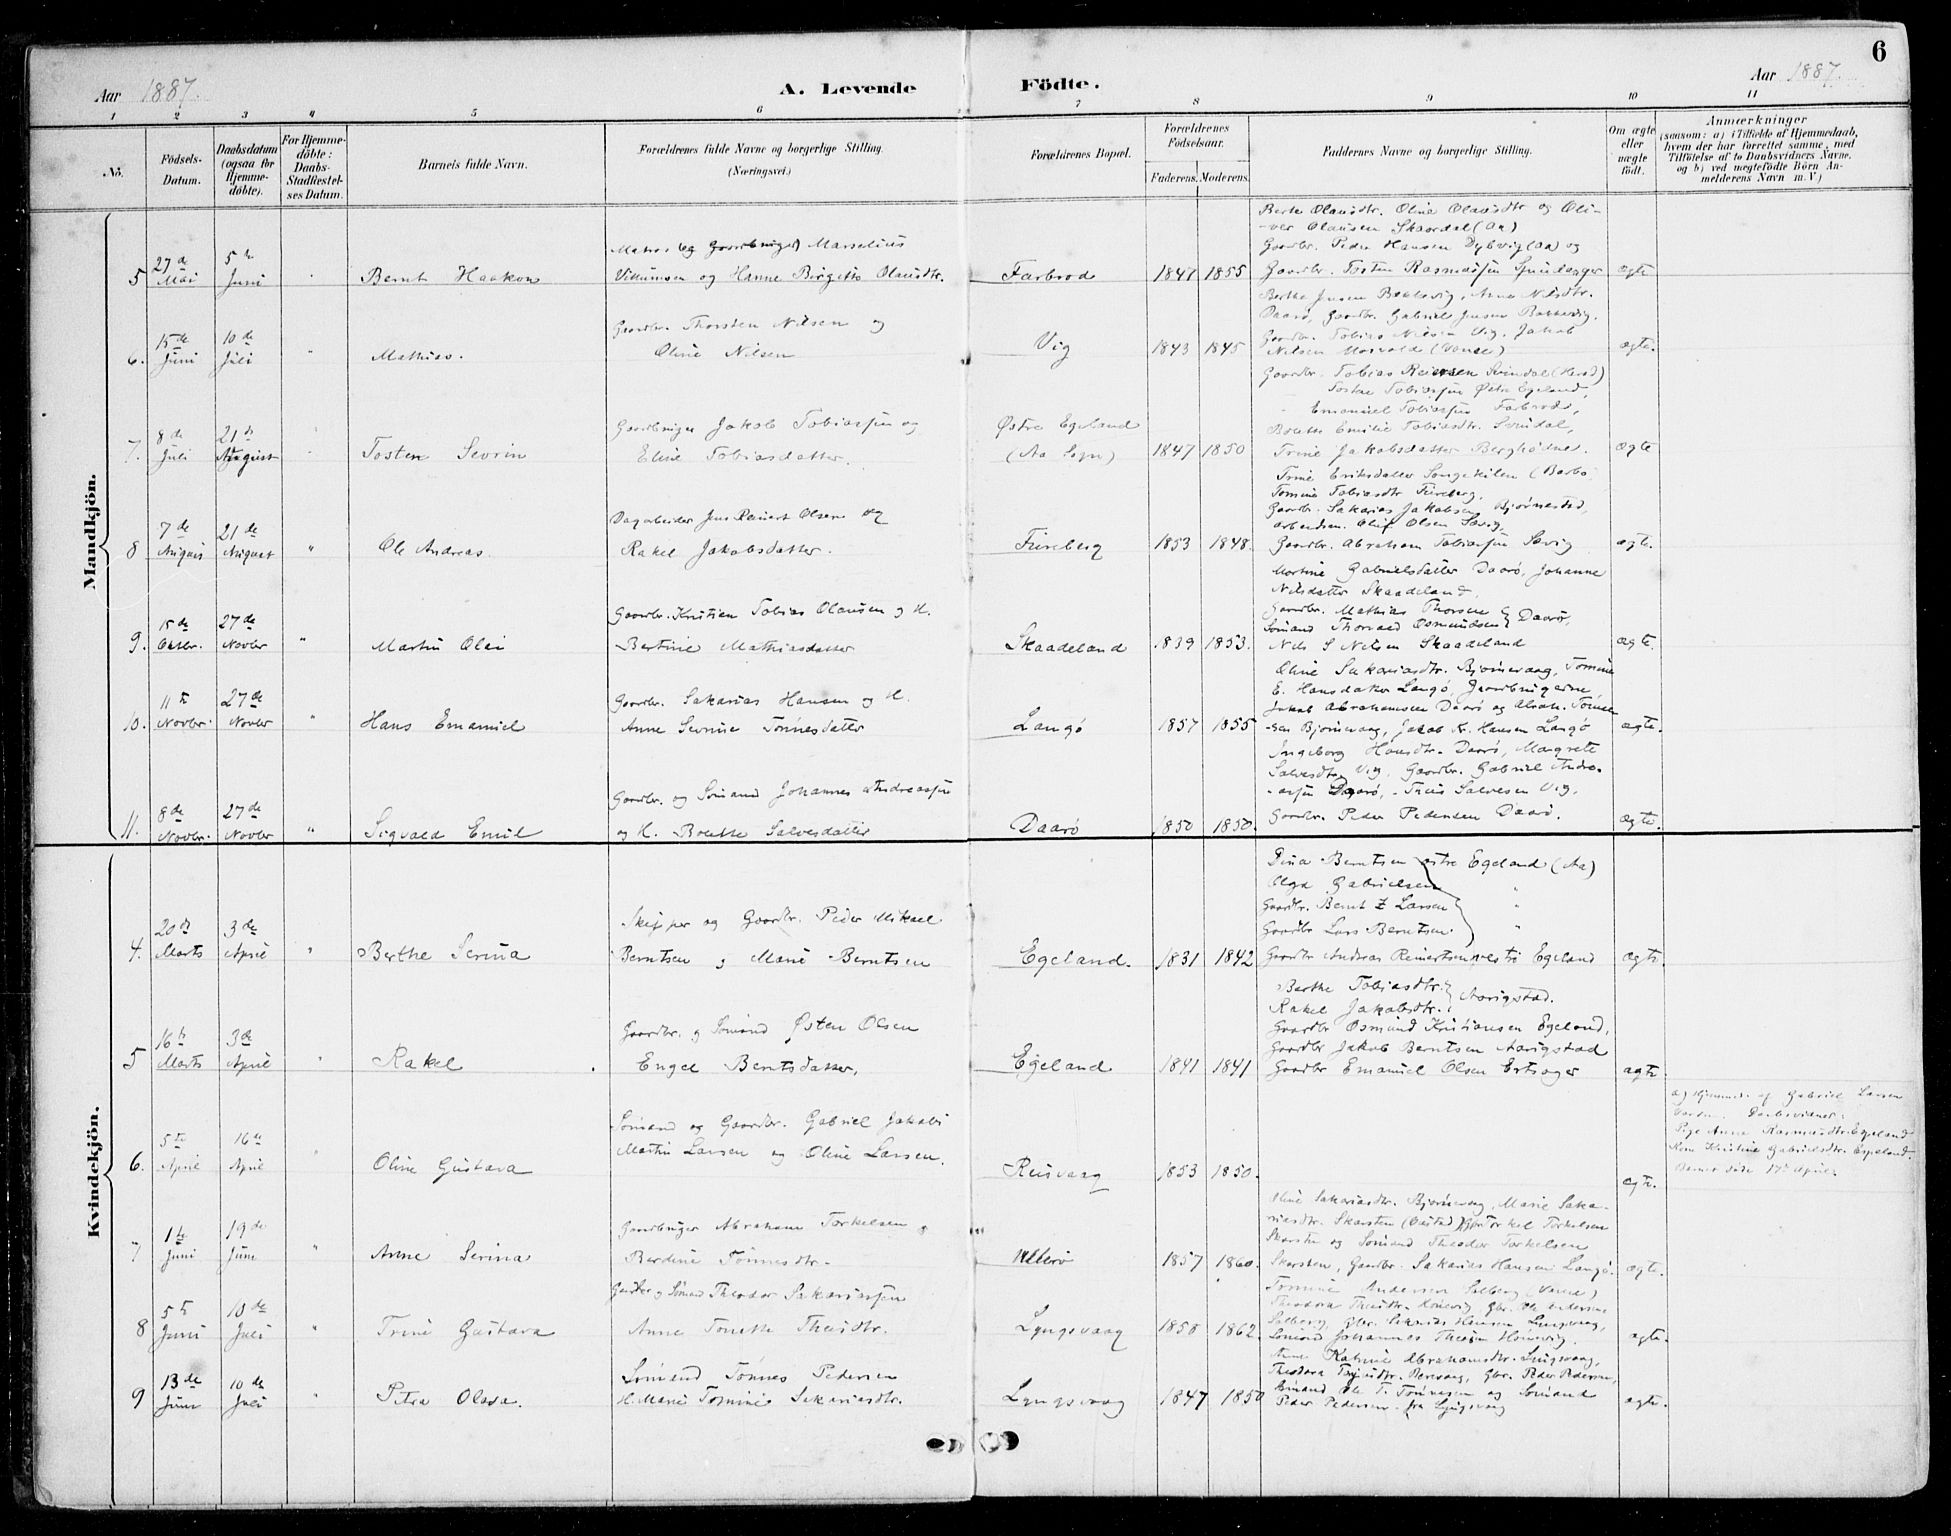 6
Aar 1887.
A. Levende Födte.
Aar 1887.
1 2 3 4 5 6 7 8 9 10 11
No.
Födsels-Datum.
Daabsdatum (ogsaa for Hjemmedöbte).
For Hjemmedöbte: Daabs-Stadfæstelses Datum.
Barnets fulde Navn.
Forældrenes fulde Navne og borgerlige Stilling. (Næringsvei.)
Forældrenes Bopæl.
Forældrenes Födselsaar.
Faderens. Moderens.
Faddernes Navne og borgerlige Stilling.
Om ægte eller uægte födt.
Anmærkninger
(saasom: a) i Tilfælde af Hjemmedaab,
hvem der har forrettet samme, med
Tilföielse af to Daabsvidners Navne,
og b) ved uegtefödte Börn An-
melderens Navn m. V.)
Mandkjön.
Berte Olausdtr. Oline Olausdtr og Oli-
-ver Olausen Skaardal (Aa)
Matros (og Gaardbruger) Marselius
Gaardbr. Peder Hansen Dybvig (Aa) og
5 27de Mai 5te Juni " Bernt Haakon
Villumsen og Hanne Birgitte Olausdtr.
Farbrod 1847 1855
Gaardbr. Tosten Rasmussen Spindanger ægte
Berthe Jensen Bakkevig, Anne Nilsdtr.
Daarø, Gaardbr. Gabriel Jensen Bakkevig.
Gaardbr. Thorsten Nilsen og
Gaardbr. Tobias Nilsen Vig. Jakob
6. 15de Juni 10de Juli " Mathias. Oline Nilsen Vig 1843 1845
Nilsen Mosvold (Vanse) ægte.
Gaardbr. Tobias Reiersen Svindal (Herad)
Tostne Tobiassen Østre Egeland,
Emanuel Tobiassen Farbrod,
Gaardbruger Jakob Tobiassen og
Østre Egeland
Bolette Emilie Tobiasdtr. Svindal,
7. 8de Juli 21de August " Tosten Sevrin Eline Tobiasdatter. (Aa Sogn) 1847 1850
Trine Jakobsdatter Berghødne. ægte
Trine Eriksdatter Songekilen (Barbo
Tomine Tobiasdtr Fureberg,
Dagarbeider Jens Reinert Olsen og
Gaardbr. Sakarias Jakobsen Bjørnestad,
arbeidsm. Oluf Olsen Sævig,
8 7de August 21de August " Ole Andreas. Rakel Jakobsdatter. Fureberg 1853 1848.
Gaardbr. Abraham Tobiassen Sævig ægte.
Martine Gabrielsdatter Daarø, Johanne
Nilsdatter Skaadeland,
Gaardbr. Kristian Tobias Olausen og H.
Gaardbr. Mathias Thorsen
Sømand Thorvald Osmundsen } Daarø,
9. 15de Oktbr. 27de Novbr " Martin Olai Bertine Mathiasdatter Skaadeland 1839 1853.
Nils S Nilsen Skaadeland ægte.
Oline Sakariasdtr. Bjørnevaag, Tomine
E. Hansdatter Langø, Gaardbrugerne
Gaardbr. Sakarias Hansen og H.
Jakob Abrahamsen Daarø og Abrah. Tønne-
10. 11te Novbr. 27de Novbr " Hans Emanuel Anne Sevrine Tønnesdatter Langø 1857 1855
sen Bjørnevaag, Jakob K. Hansen Langø ægte.
Ingeborg Hansdtr. Daarø, Margrete
Salvesdtr Vig, Gaardbr. Gabriel Andre-
Gaardbr. og Sømand Johannes Andreassen
-assen Daarø, Theis Salvesen Vig,
11. 8de Novbr. 27de Novbr " Sigvald Emil og H. Bolette Salvesdatter Daarø 1850 1850.
Gaardbr. Peder Pedersen Daarø. ægte.
Kvindekjön.
Tina Berntsen østre Egeland (Aa)
Olga Gabrielsen "
Skipper og Gaardbr. Peder Mikael
Gaardbr. Bernt Z Larsen "
Gaardbr Lars Berntsen. "
4. 20de Marts 3de April " Berthe Serina Berntsen og Marie Berntsen Egeland. 1831 1842
Gaardbr Andreas Reinertsen vestre Egeland ægte.
Berthe Tobiasdtr.
Rakel Jakobsdtr. } Aarigstad.
Gaardbr. og Sømand Østen Olsen
Gaardbr Osmund Kristiansen Egeland,
Gaardbr Jakob Berntsen Aarigstad
5 16de Marts 3de April " Rakel Engel Berntsdatter. Egeland 1841 1841
Gaardbr Emanuel Olsen Ertsager ægte
a) Hjemmed. af Gabriel Larsen
Sømand og Gaardbr. Gabriel Jakobi
Daabsvidner:
Pige Anna Rasmusdtr. Egeland
6. 5te April 16de April " Oline Gustava Martin Larsen og Oline Larsen. Reisvaag 1853 1850. ægte.
Kone Kristine Gabrielsdtr. Egeland.
Barnet døde 17de April
Oline Sakariasdtr. Bjørnevaag, Marie Saka-
Gaardbruger Abraham Torkelsen og
riasdtr. Skarsten (Oustad) Gbr Torkel Torkelsen
Skarsten og Sømand Theodor Torkelsen
7 1te Juni 19de Juni " Anne Serina Berdine Tønnesdtr. Ullerø 1857 1860.
Skarsten, Gaardbr. Sakarias Hansen Langø. ægte.
Tomine Andersen Salberg (Vanse)
Gaardbr og Sømand Theodor Sakariassen
Theodora Theisdtr. Hønevig, Gbr. Ole Andersen
8 5te Juni 10de Juli " Trine Gustava Anne Tonette Theisdtr. Lyngsvaag 1858 1862.
Salberg, Gbr. Sakarias Hansen Lyngsvaag,
Sømand Johannes Theisen Hønevig. ægte.
Anne Katrine Abrahamsdtr. Lyngsvaag,
Sømand Tønnes Pedersen
Theodora Theisdtr. Reisvaag, Gbr. Peder Pedersen,
9 13de Juni 10de Juli " Petra Olava. H. Marie Tomine Sakariasdtr. Lyngsvaag 1847 1850
Sømand Ole T. Tønnesen og Sømand
Peder Pedersen fra Lyngsvaag ægte.